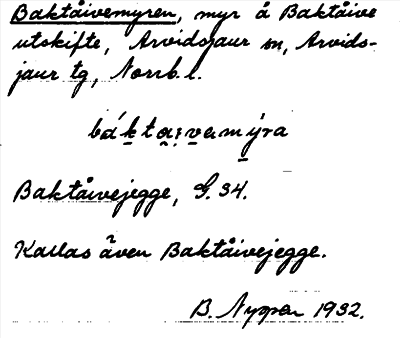 Baktåivemyren, myr å Baktåive
utskifte, Arvidsjaur sn, Arvids-
jaur tg, Norrb. l.
Baktåivejegge, G. 34.
Kallas även Baktåivejegge.
B. Nyman 1932.